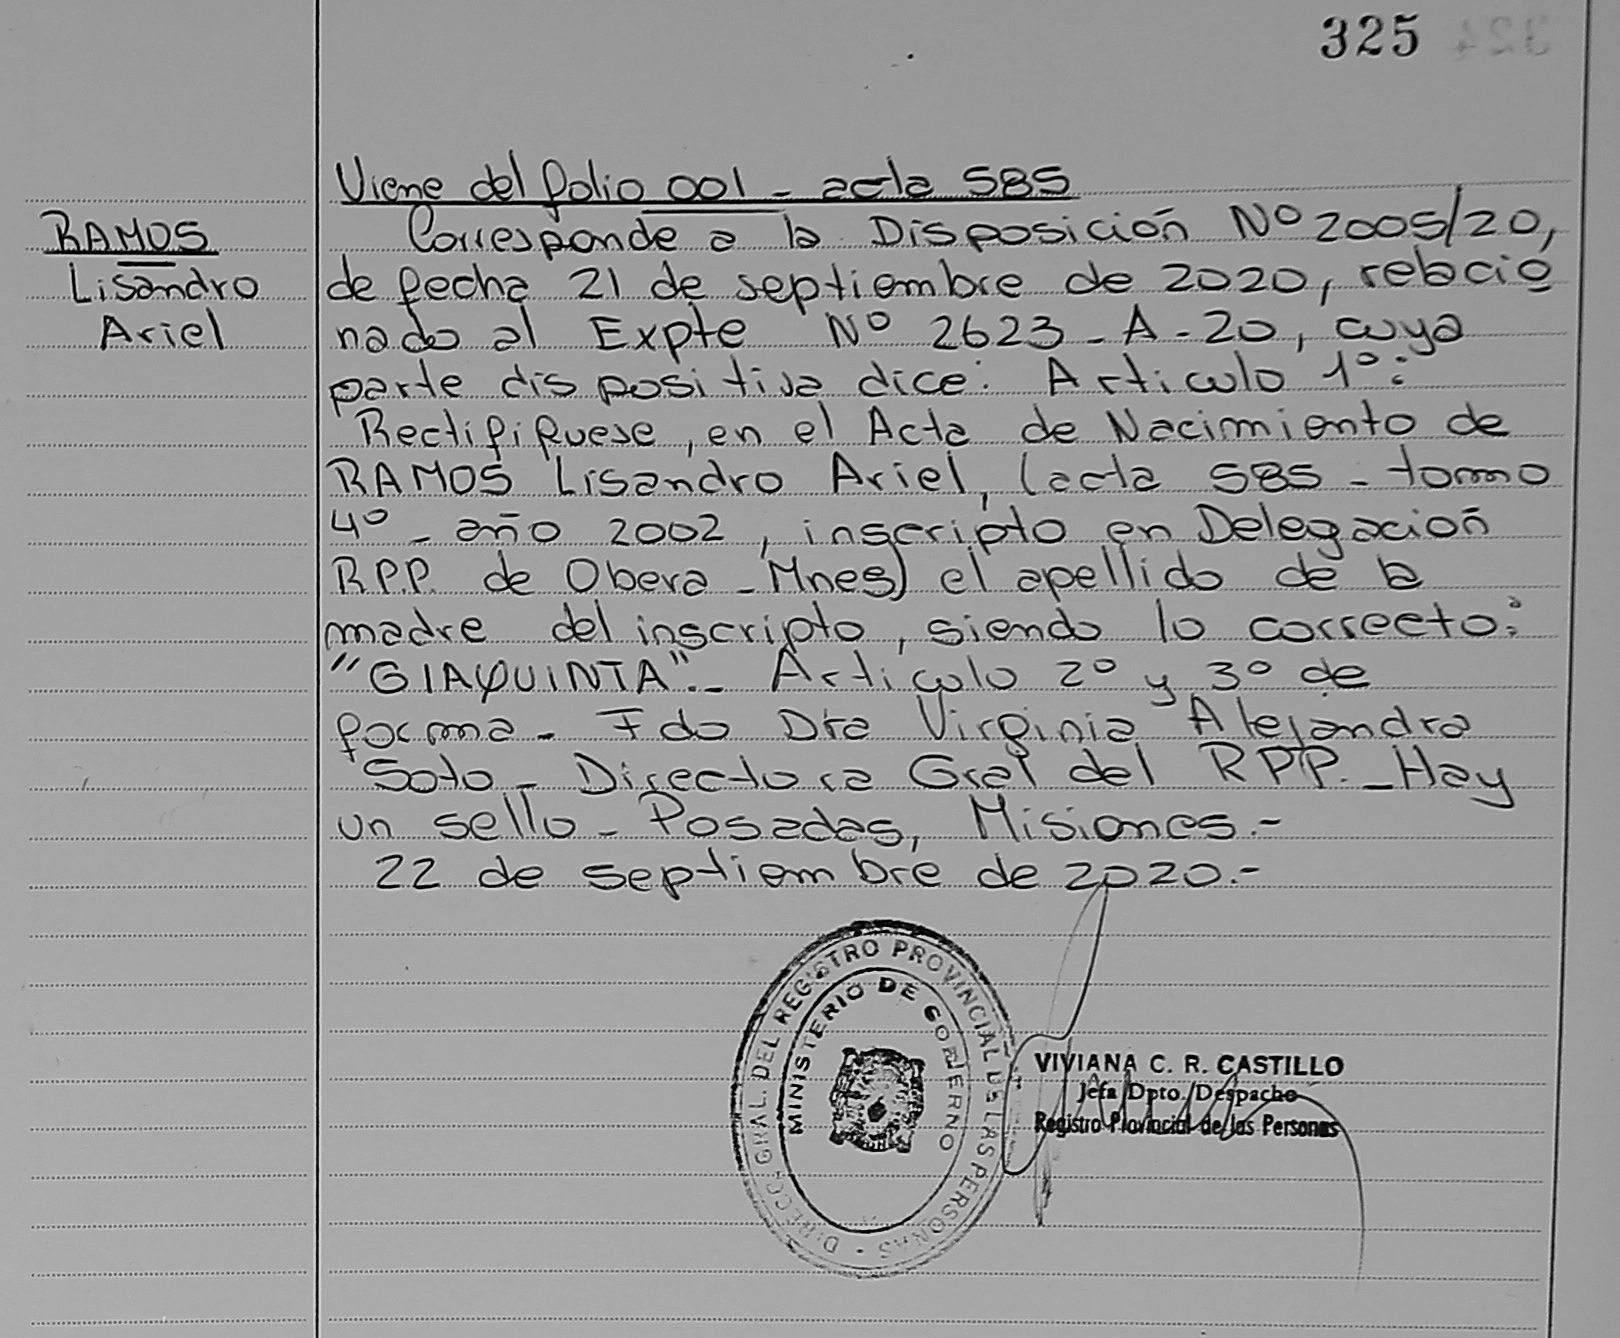 325
324
Viene del folio 001 - acta 585
RAMOS
Lisandro
Ariel
Corresponde a la Disposición Nº 2005/20,
de fecha 21 de septiembre de 2020, relacio
nado al Expte Nº 2623 - A - 20, cuya
parte dispositiva dice: Articulo 1º:
Rectifiquese, en el Acta de Nacimiento de
RAMOS Lisandro Ariel, (acta 585 - tomo
4º - año 2002, inscripto en Delegación
R.P.P. de Obera - Mnes) el apellido de la
madre del inscripto, siendo lo correcto:
"GIAQUINTA".- Artículo 2º y 3º de
forma - Fdo Dra Virginia Alejandra
Soto - Directora Gral del RPP. - Hay
un sello - Posadas, Misiones.-
22 de septiembre de 2020.-
DIRECC. GRAL. DEL REGISTRO PROVINCIAL DE LAS PERSONAS
MINISTERIO DE GOBIERNO
VIVIANA C. R. CASTILLO
Jefa Dpto. Despacho
Registro Provincial de las Personas